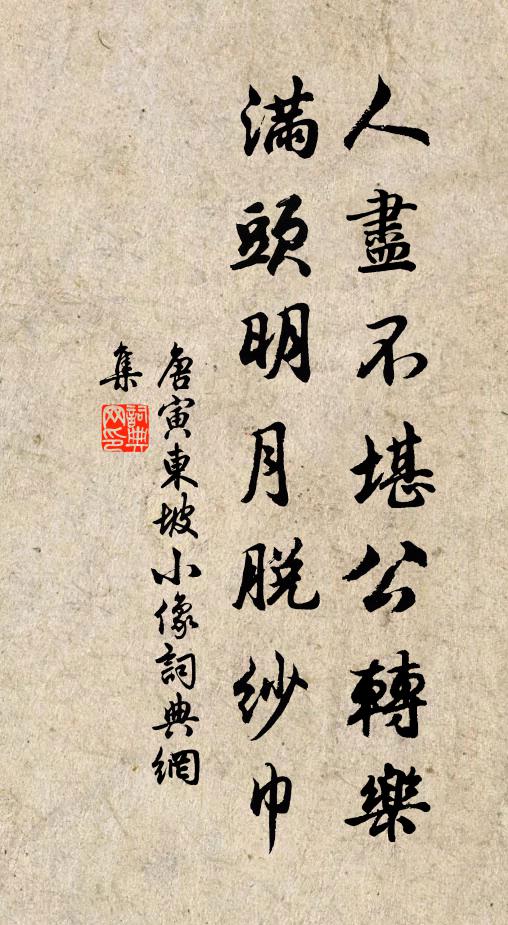 人盡不堪公轉樂
滿頭明月脫紗巾
唐寅東坡小像詞典網
集
詞典
网印